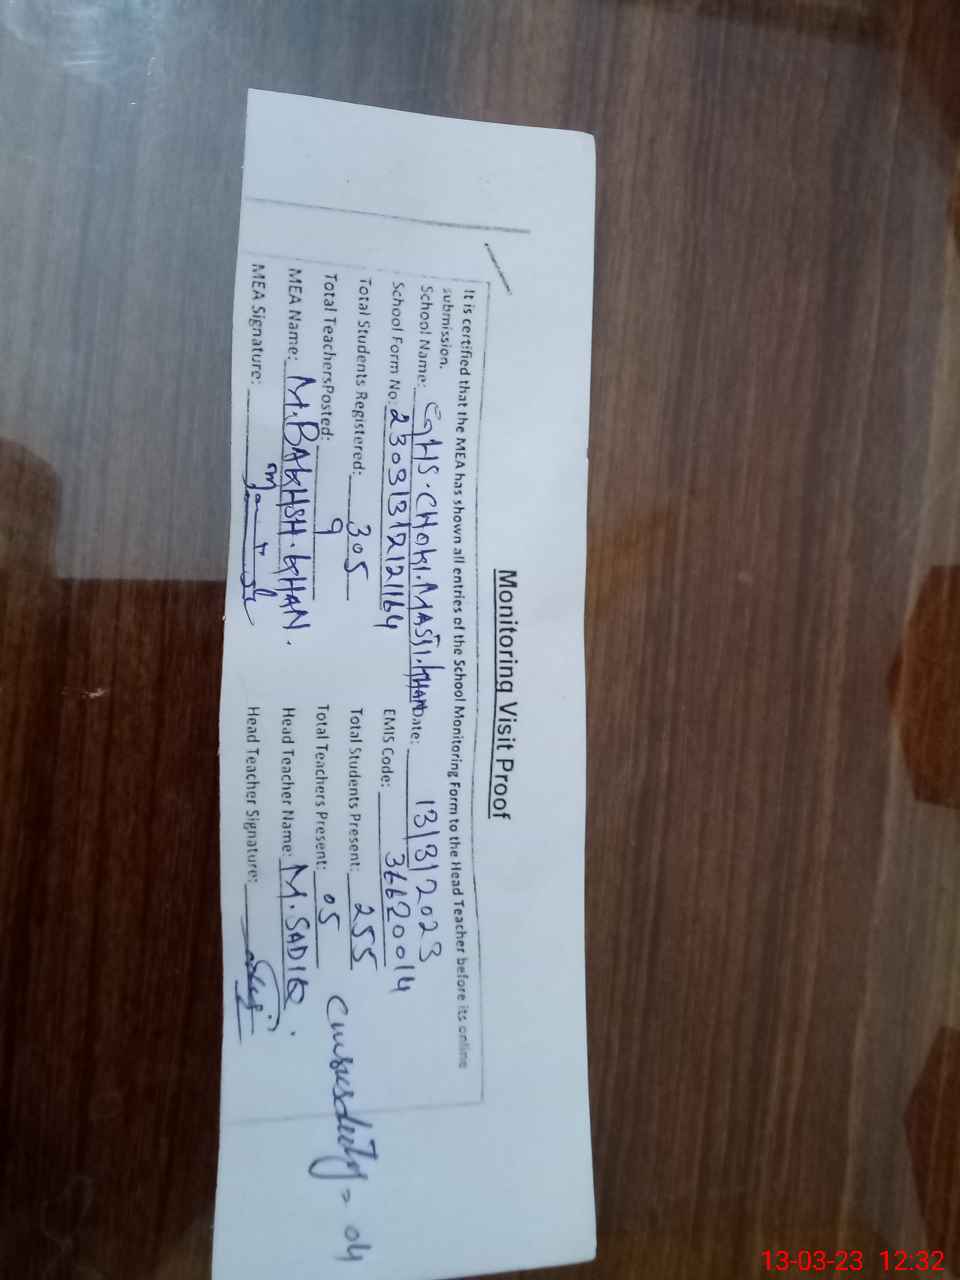 Monitoring Visit Proof
It is certified that the MEA has shown all entries of the School Monitoring Form to the Head Teacher before its online
submission.
School Name: GHS. CHOKI. MASTI. KHAN Date: 13/3/2023
School Form No: 2303131212164 EMIS Code: 36620014
Total Students Registered: 305 Total Students Present: 255
Total TeachersPosted: 9 Total Teachers Present: 05 = 04
MEA Name: M. BAKHSH. KHAN. Head Teacher Name: M. SADIQ.
MEA Signature: Head Teacher Signature:
13-03-23 12:32